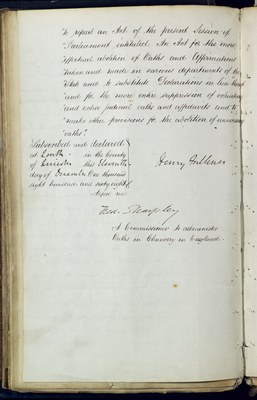 "to repeal an Act of the present Session of
"Parliament intituled An Act for the more
"effectual abolition of Oaths and Affirmations
"taken and made in various departments of the
"State and to substitute Declarations in lieu thereof
"and for the more entire suppression of voluntary
"and extra judicial oaths and affidavits and to
"make other provisions for the abolition of unnecessary
"oaths".
Subscribed and declared
at Louth in the County
of Lincoln this
day of One thousand
eight hundred and sixty eight
Before me
Henry
Fred. Sharpley
A Commissioner to administer
Oaths in Chancery in England